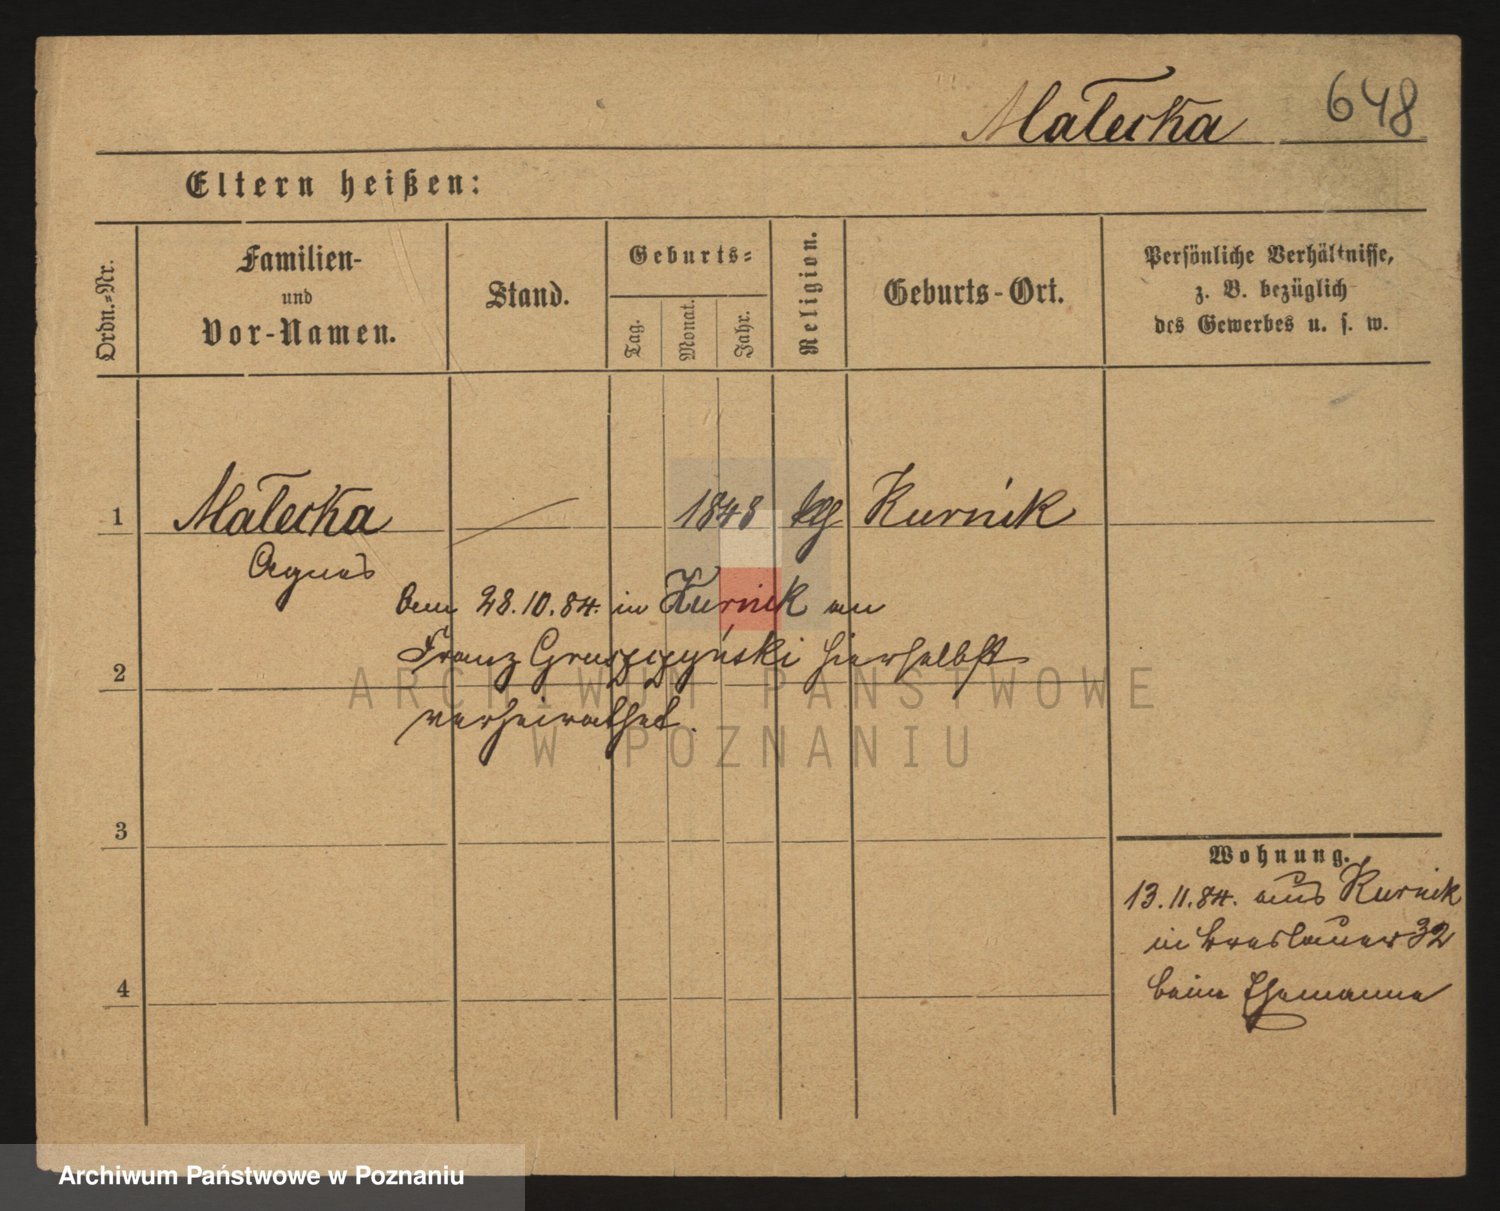 Małecka 648
Eltern heißen:
Ordn.-Nr.
Familien-
und
Vor-Namen.
Stand.
Geburts-
Tag.
Monat.
Jahr.
Religion.
Geburts-Ort.
Persönliche Verhältnisse,
z. B. bezüglich
des Gewerbes u. s. w.
1 Małecka 1848 kg Kurnik
Agnes
28.10.84. in Kurnik an
2 Franz hierselbst
verheirathet.
ARCHIWUM PAŃSTWOWE
W POZNANIU
3
Wohnung.
13.11.84. aus Kurnik
in Breslauer 32
4 beim Ehemanne
Archiwum Państwowe w Poznaniu